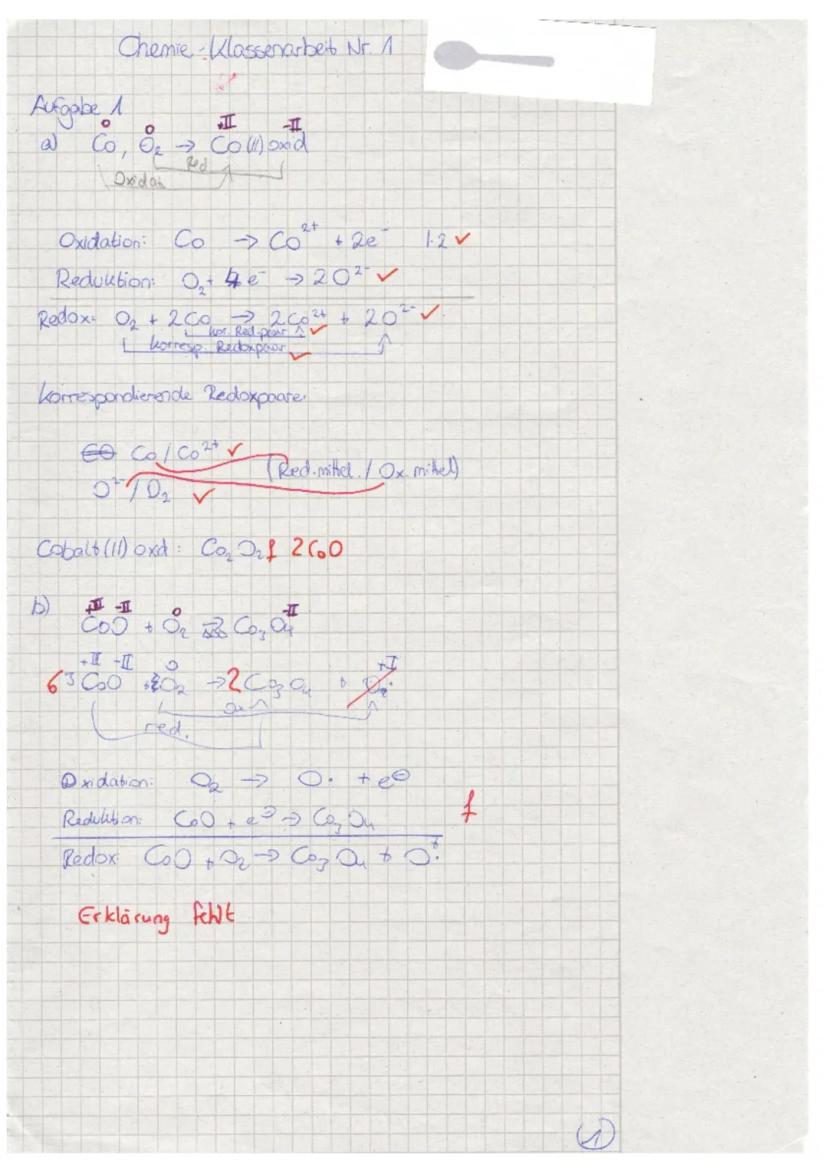 Chemie-Klassenarbeit Nr. 1
Aufgabe 1
0 0 +II -II
a) Co, O₂ → Co(II)oxid
Red
Oxidat.
Oxidation: Co → Co²⁺ + 2e⁻ 1·2 ✓
Reduktion: O₂ + 4e⁻ → 2O²⁻ ✓
Redox: O₂ + 2Co → 2Co²⁺ + 2O²⁻ ✓
kor. Red.paar ✓
korresp. Redoxpaar ✓
korrespondierende Redoxpaare:
Co / Co²⁺ ✓
(Red.mittel / Ox.mittel)
O²⁻ / O₂ ✓
Cobalt(II)oxid: Co₂O₂ f 2CoO
+II -II 0 -II
b) CoO + O₂ → Co₃O₄
+II -II 0 +I
6 3 CoO + O₂ → 2 Co₃O₄ +
Ox
red.
Oxidation: O₂ → O· + e⊖
Reduktion: CoO + e⊖ → Co₃O₄ f
Redox: CoO + O₂ → Co₃O₄ + O·⁺
Erklärung fehlt
1